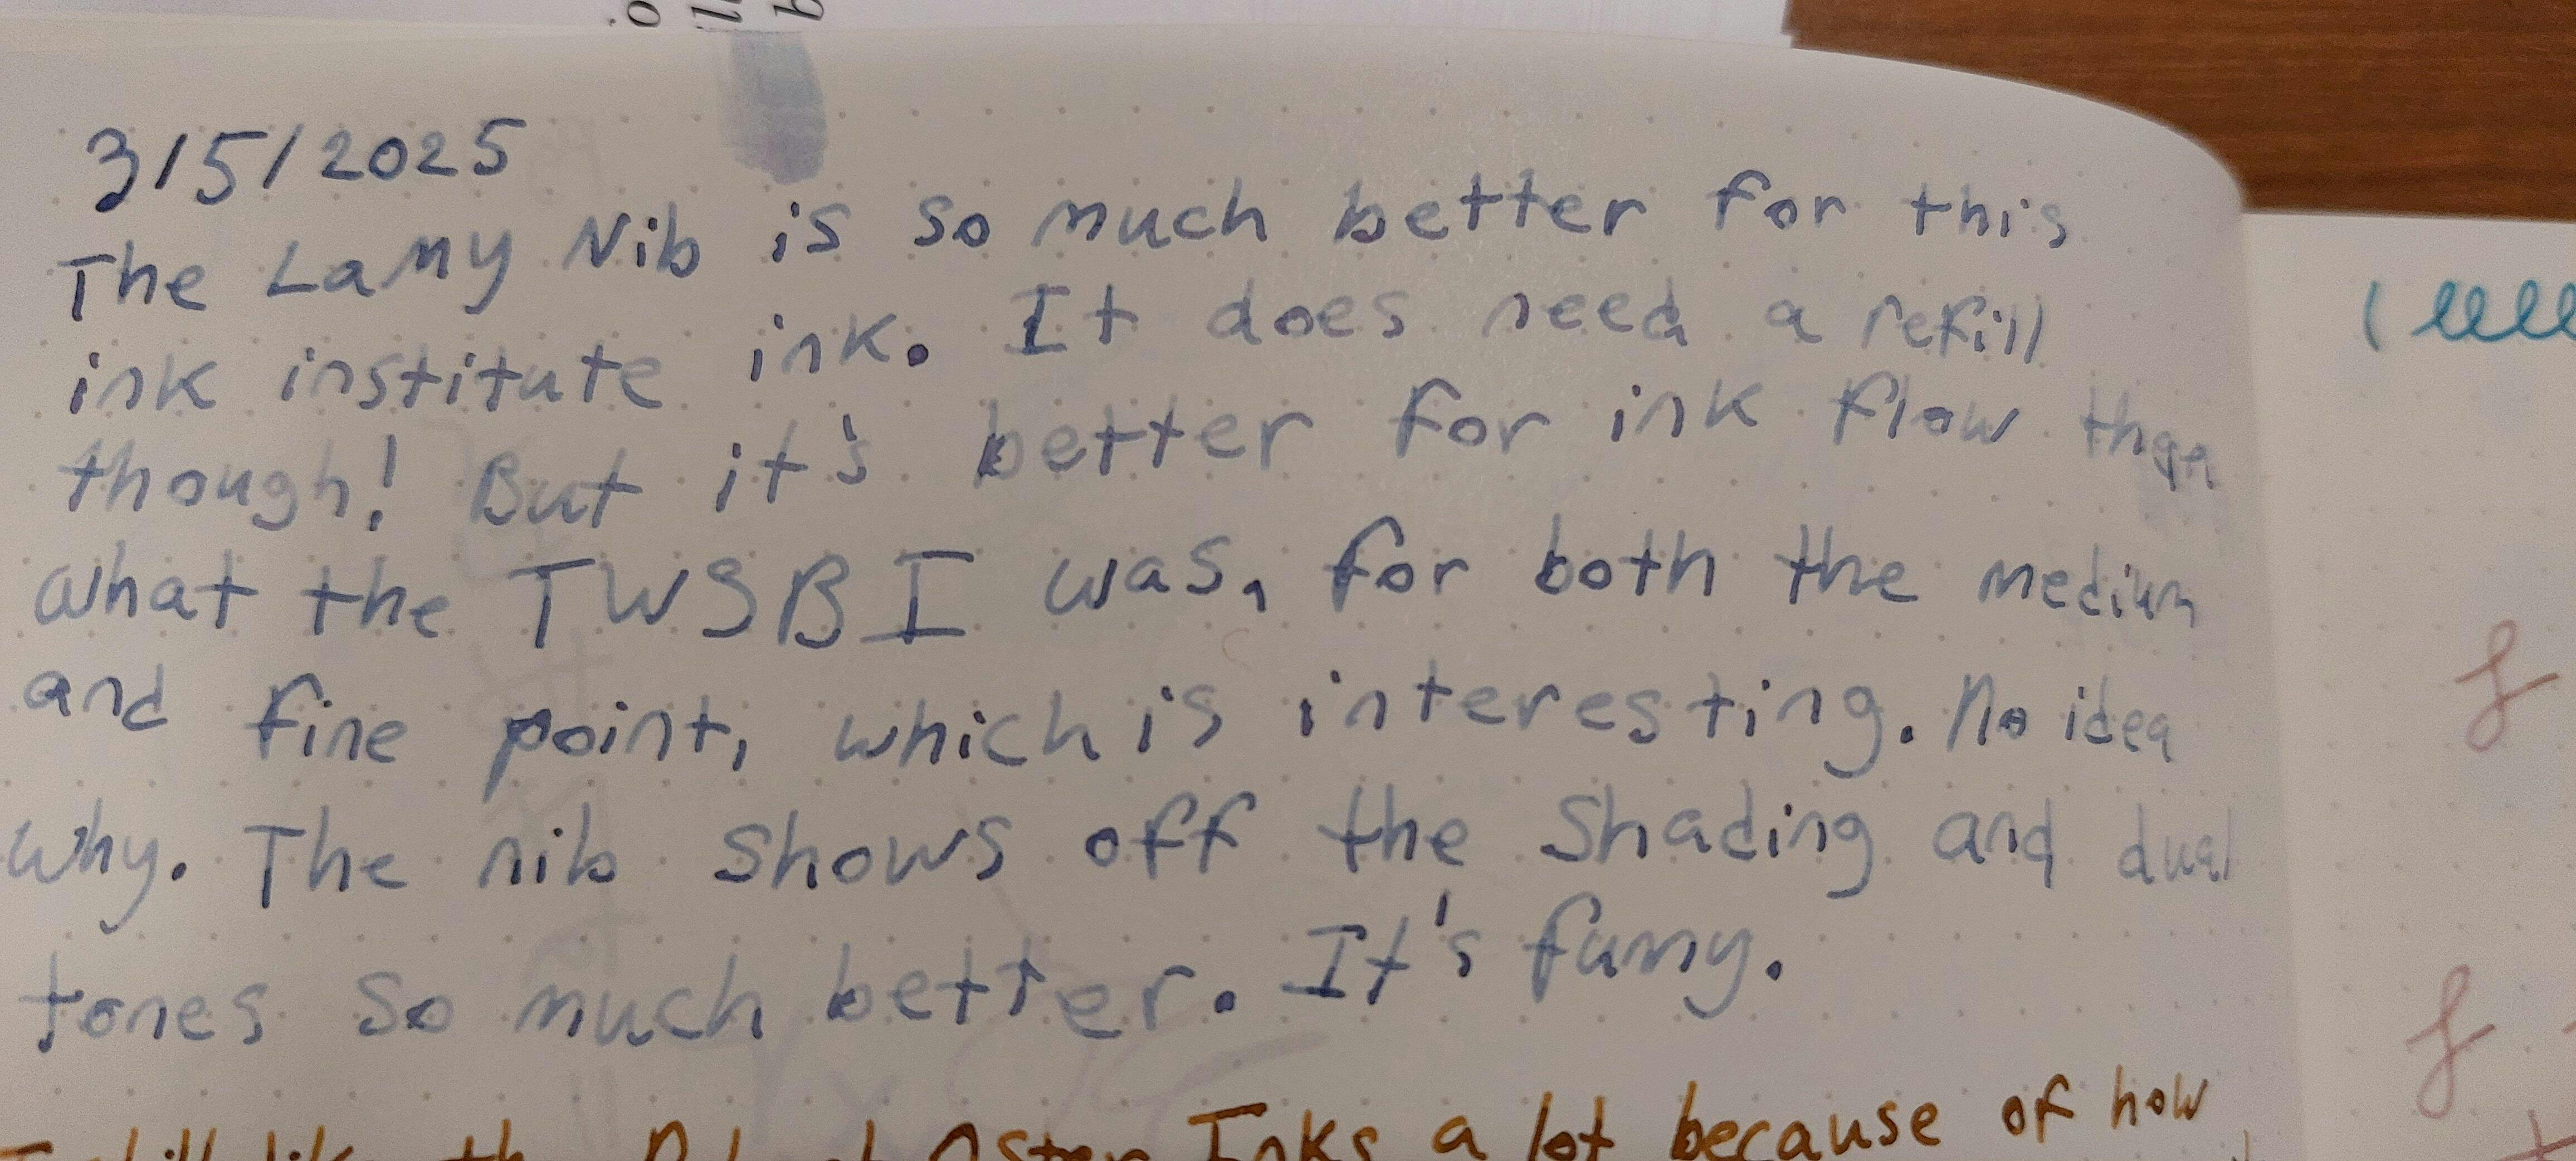 3/5/2025
The Lamy Nib is so much better for this
ink institute ink. It does need a refill
though! But it's better for ink flow than
what the TWSBI was, for both the medium
and fine point, which is interesting. No idea
why. The nib shows off the shading and dual
tones so much better. It's funny.
I still like the Inks a lot because of how